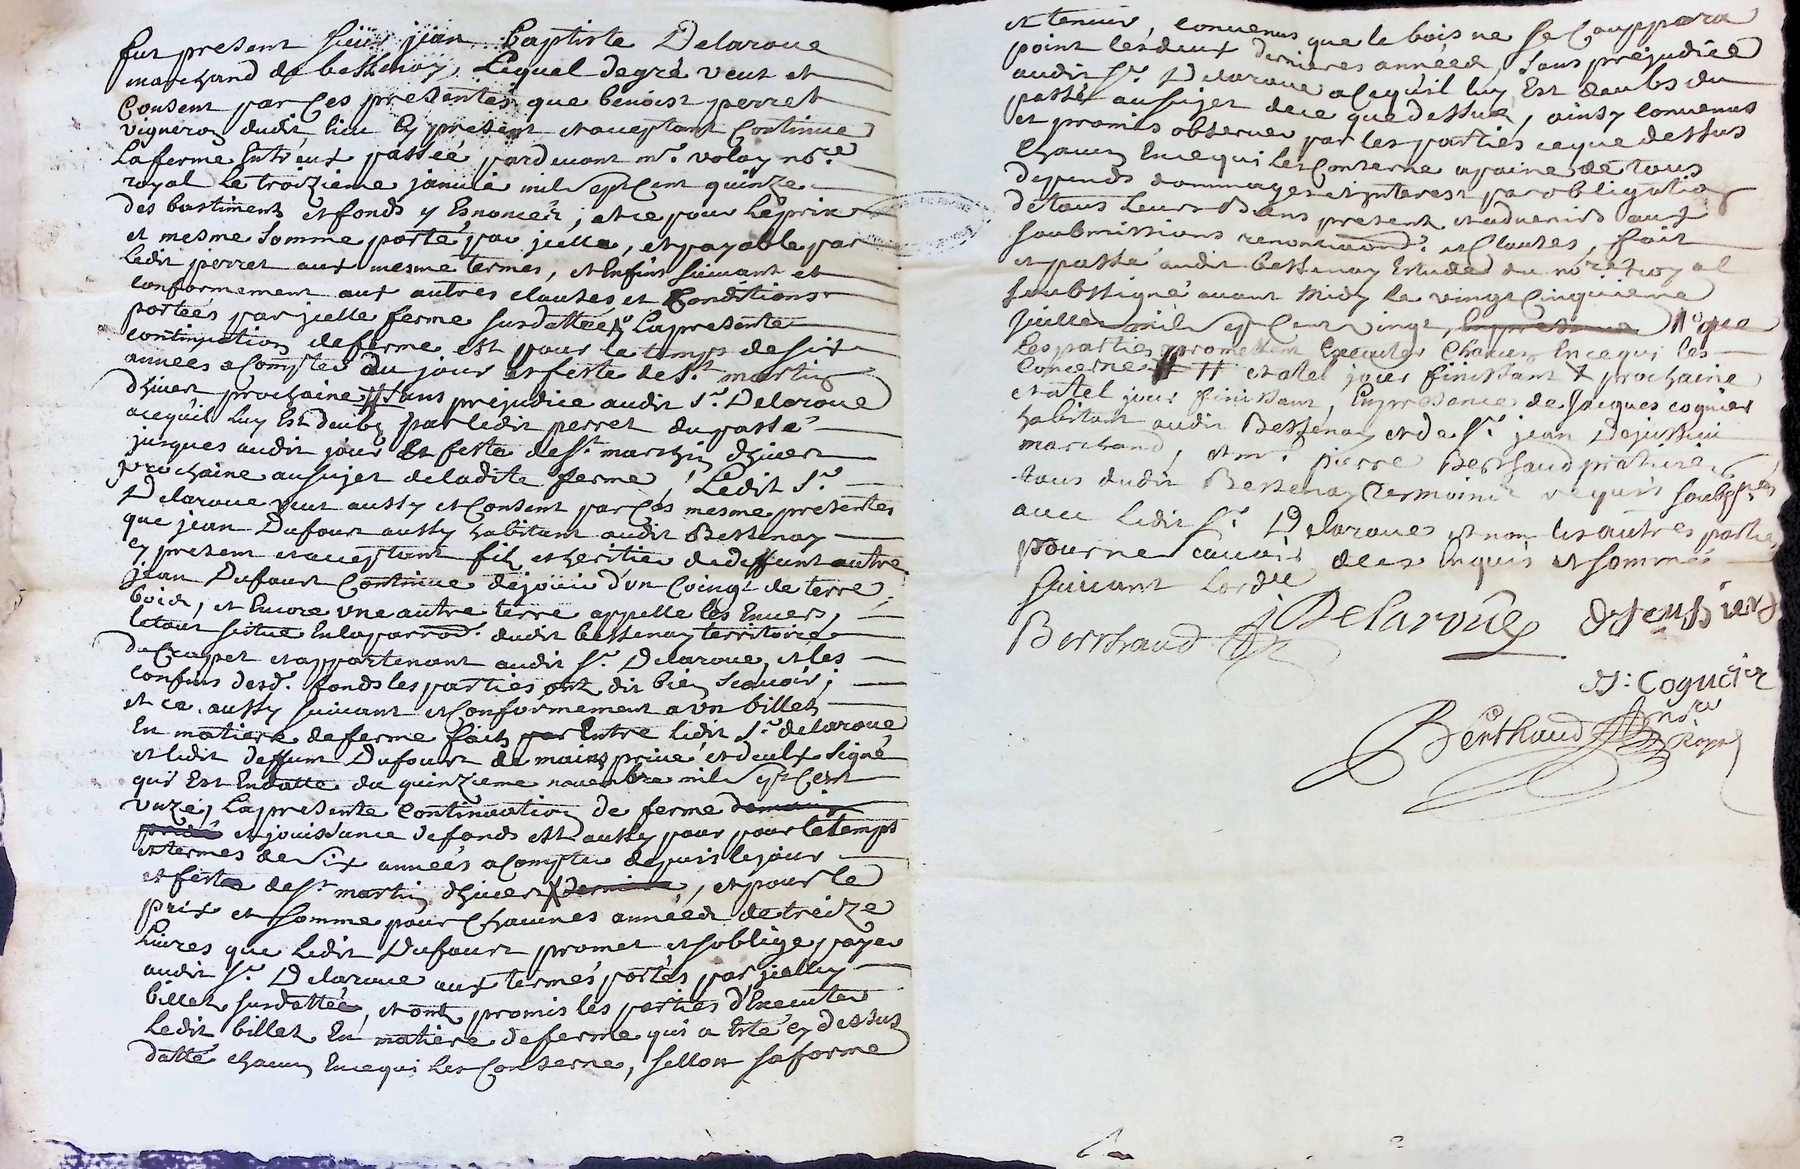 fut present sieur jean Baptiste Delaroue
marchand de bessenay, Lequel degré veut et
Consent par ces presentes que benoist perret
vigneron dudit lieu cy present et acceptant Continue
la ferme Entreux passéé pardevant mr. volay nore
royal le troizieme janvié mil sept Cent quinze
des bastiments et fonds y Esnoncér, et ce pour le prix
et mesme somme porté par jcelle, et payable par
ledit perret aux mesme termes, et Enfin suivant et
conformement aux autres clauses et Conditions
portéés par jcelle ferme susdattéé, La presente
continuation de ferme est pour le temps de six
années a Compter du jour et feste de St. martin
dhiver prochaine // sans prejudice audit Sr. Delaroue
a ce quil luy Est deubt par ledit perret du passé
jusques audit jour et feste de St. marthin dhiver
prochaine au sujet de ladite ferme, Ledit Sr.
Delaroue veut aussy et Consent par Ces mesme presentes
que jean Dufour aussy habitant audit Bessenay
cy present et acceptant fils et heritie de deffunt autre
jean Dufourt Continue de jouir d'un Coingt de terre
bois, et Encore vne autre terre appelle les Envers,
le tout situe En la parrod. dudit bessenay territoire
du Crapet et appartenant audit Sr. Delaroue, et les
confins desd. fonds les parties ont dit bien scavoir;
et ce aussy suivant et Conformement a vn billet
En matiere de ferme fait par Entre ledit Sr. delaroue
et ledit deffunt Dufourt de main privé et deulx signé
qui Est En datte du quinzieme novembre mil spt Cent
vnze, La presente Continuation de ferme de main
privé et jouissance de fonds est aussy pour pour le temps
et termes de six années a Compter depuis le jour
et feste de St martin dhiver X derniere, et pour le
prix et somme pour Chacunes annéés de treize
livres que ledit Dufourt promet et soblige payer
audit Sr. Delaroue aux termes portés par jcelluy
billet susdattéé, et ont promis les parties d'Executer
ledit billet En matiere de ferme qui a Esté cy dessus
datté chacun En ce qui les Conserne, sellon sa forme
et teneur, convenus que le bois ne se Couppara
point les deux dernieres annéés, sans prejudice
audit Sr. Delaroue a ce quil luy Est deubs du
passé au sujet de ce que dessus, ainsy convenus
et promis observer par les parties ce que dessus
chacun En ce qui les Conserne a paine de tous
depends dommages et jnterest par obligation
de tous leurs Biens present et advenirs aux
soubmissions renonciaons. et Clauses, fait
et passé audit bessenay Estude du nore royal
soubssigné avant midy le vingt Cinquieme
juillet mil spt Cent vingt, En presence que
les parties promettent Executer Chacun En ce qui les
Concerne // et a tel jour finissant X prochaine
et a tel jour finissant, En presence de Jacques cognier
habitant audit Bessenay et de Sr. jean Dejussieu
marchand, et mr. pierre Berthaud praticien
tous dudit Bessenay tesmoints requis soubsignes
avec ledit Sr. Delaroue et non les autres parties
pour ne scavoir de ce Enquis et sommés
suivant Lordce
Berthaud
J Delaroue
Dejussieu
J: Cognier
Berthaud nore
Royal